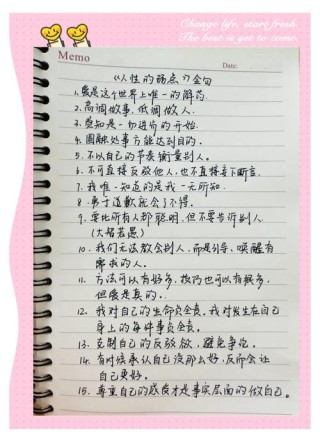 Change life, start fresh.
The best is yet to come.
Memo
Date:
《人性的弱点》金句
1、爱是这个世界上唯一的解药.
2、高调做事，低调做人.
3、感知是一切进阶的开始.
4、圆融处事方能达到目的.
5、不以自己的节奏衡量别人。
6、不可直接反驳他人，也不直接主下断言.
7、我唯一知道的是我一无所知.
8、勇于道歉就会了不得.
9、要比所有人都聪明，但不要告诉别人.
(大智若愚)
10、我们无法教会别人，而是引导，唤醒有
需求的人。
11、方法可以有好多，技巧也可以有很多，
但爱是真的.
12、我对自己的生命负全责。我对发生在自己
身上的每件事负全责。
13、克制自己的反驳欲，避免争论.
14、有时候承认自己没那么好，反而会让
自己更好.
15、尊重自己的感度才是事实层面的做自己。